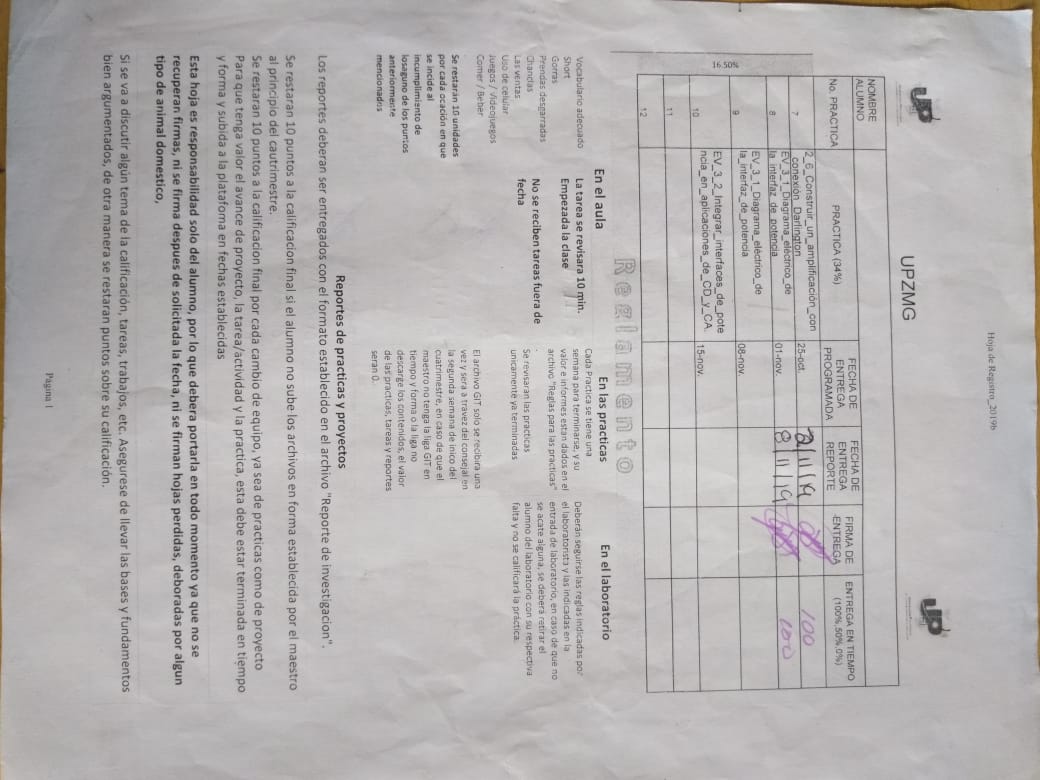 Hoja de Registro_2019b
UPZMG
NOMBRE ALUMNO
No. PRACTICA
PRACTICA (34%)
FECHA DE ENTREGA PROGRAMADA
FECHA DE ENTREGA REPORTE
FIRMA DE ENTREGA
ENTREGA EN TIEMPO (100%,50%,0%)
16.50%
7
2_6_Construir_un_amplificación_con
_conexión_Darlington
25-oct.
100
8
EV_3_1_Diagrama_eléctrico_de
la_interfaz_de_potencia
01-nov.
8/11/19
100
9
EV_3_1_Diagrama_eléctrico_de
la_interfaz_de_potencia
08-nov.
10
EV_3_2_Integrar_interfaces_de_pote
ncia_en_aplicaciones_de_CD_y_CA.
15-nov.
11
12
Reglamento
En el aula
Vocabulario adecuado
Short
Gorras
Prendas desgarradas
Chanclas
Las ventas
Uso de celular
Juegos / Vidojuegos
Comer / Beber
Se restarán 10 unidades
por cada ocación en que
se incide al
incumplimiento de
losaguno de los puntos
anteriormente
mencionados
La tarea se revisara 10 min.
Empezada la clase
No se reciben tareas fuera de
fecha
En las practicas
Cada Practica se tiene una
semana para terminarse, y su
valor e informes estan dados en el
archivo "Reglas para las practicas"
Se revisaran las practicas
unicamente ya terminadas
El archivo GIT solo se recibira una
vez y sera a travez del consejal en
la segunda semana de inico del
cuatrimestre, en caso de que el
maestro no tenga la liga GIT en
tiempo y forma o la liga no
descarge los contenidos, el valor
de las practcas, tareas y reportes
seran 0.
En el laboratorio
Deberán seguirse las reglas indicadas por
el laboratorista y las indicadas en la
entrada de laboratorio, en caso de que no
se acate alguna, se deberá retirar el
alumno del laboratorio con su respectiva
falta y no se calificará la práctica.
Reportes de practicas y proyectos
Los reportes deberan ser entregados con el formato establecido en el archivo "Reporte de investigacion".
Se restaran 10 puntos a la calificacion final si el alumno no sube los archivos en forma establecida por el maestro
al principio del cautrimestre.
Se restaran 10 puntos a la calificacion final por cada cambio de equipo, ya sea de practicas como de proyecto
Para que tenga valor el avance de proyecto, la tarea/actividad y la practica, esta debe estar terminada en tiempo
y forma y subida a la platafoma en fechas establecidas
Esta hoja es responsabilidad solo del alumno, por lo que debera portarla en todo momento ya que no se
recuperan firmas, ni se firma despues de solicitada la fecha, ni se firman hojas perdidas, deboradas por algun
tipo de animal domestico,
Si se va a discutir algún tema de la calificación, tareas, trabajos, etc. Asegurese de llevar las bases y fundamentos
bien argumentados, de otra manera se restaran puntos sobre su calificación.
Página 1